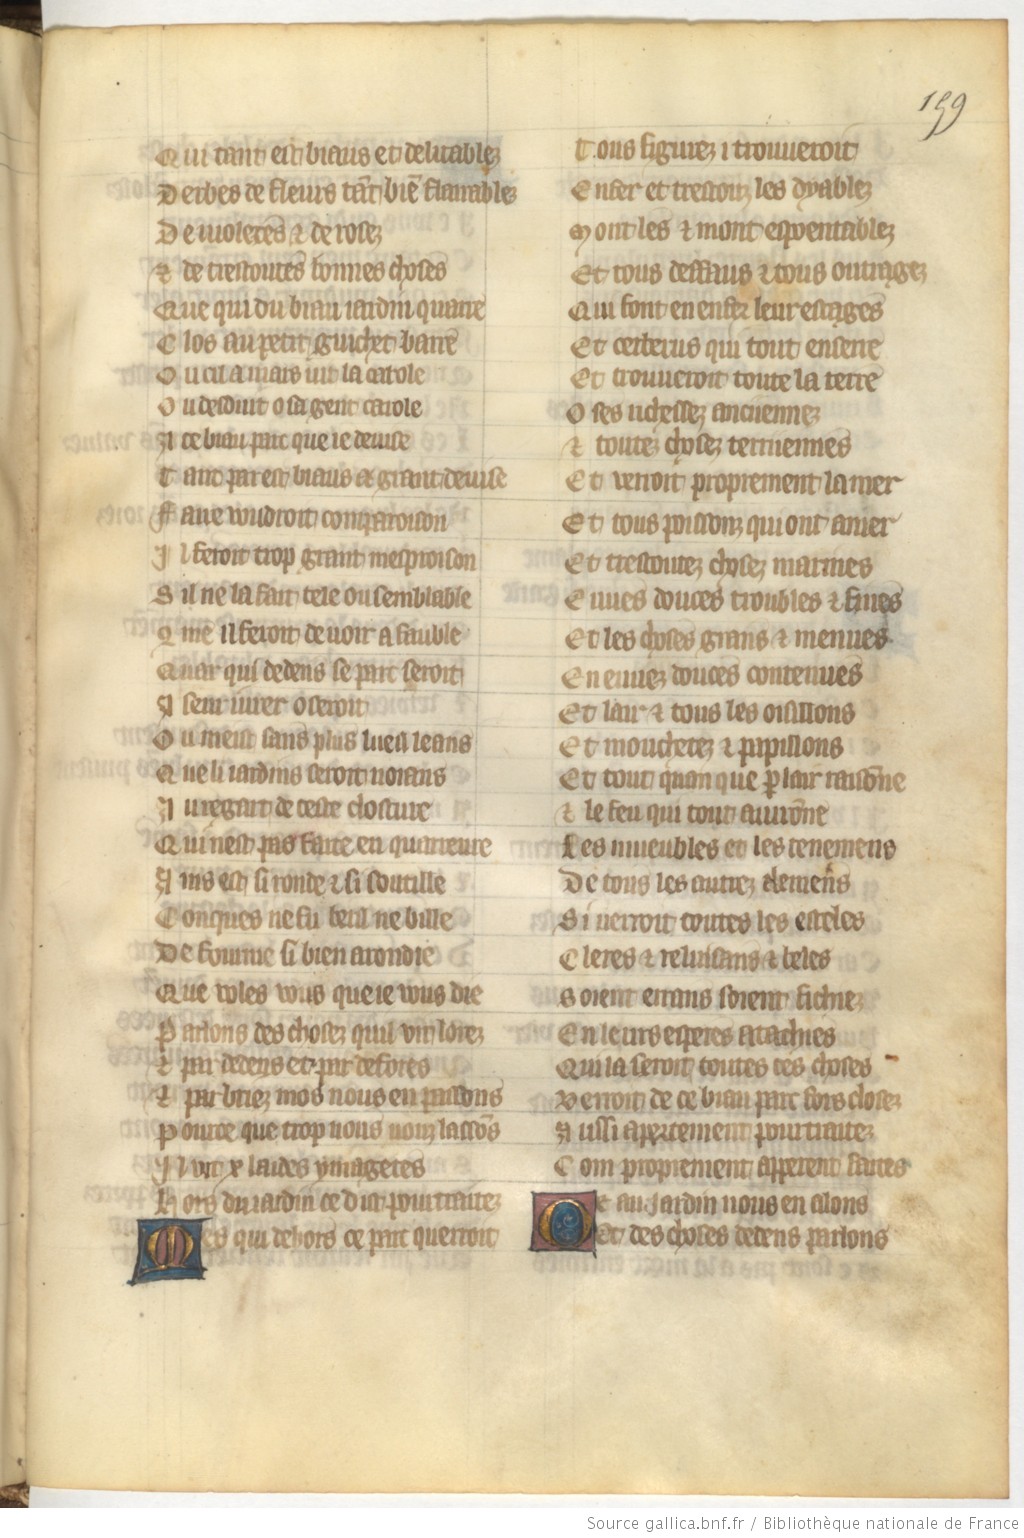 159
Qui tant est biaus et delitablez
Derbes de fleurs tāt biē flairables
De violetes & de rosez
& de trestoutes bonnes choses
Que qui du biau iardin quarre
Clos au petit guichet barre
Ou cil amans uit la carole
Ou desduit o sa gent carole
A ce biau parc que ie deuise
Tant par est biaus a grant deuise
Faire voudroit comparoison
Il feroit trop grant mesproison
Sil ne la fait tele ou semblable
Cme il feroit de uoir a fauble
Quar qui dedens se parc seroit
Aseur iurer oseroit
Ou meist sans plus lueil leans
Que li iardins seroit noians
Au regart de ceste closture
Qui nest pas faite en quarreure
Ains est si ronde & si soutille
Conques ne fu beril ne bille
De fourme si bien arondie
Que voles vous que ie vous die
Parlons des chosez quil vit lorez
& par dedens et par defores
& par briez mos nous en passons
Pource que trop nous nous lassōs
Il vit x laides ymagetes
Hors du iardin ce dist pourtraitez
Mes qui dehors ce parc querroit
Tous figurez i trouueroit
Enfer et trestouz les dyablez
Moult les & mont espoentablez
Et tous deffaus & tous outragez
Qui font en enfer leur estages
Et cerberus qui tout enserre
Et trouueroit toute la terre
O ses richessez anciennez
& toutez chosez terriennes
Et verroit proprement la mer
Et tous poissonz qui ont amer
Et trestoutez chosez marines
Eaues douces troubles & fines
Et les choses grans & menues
En eauez douces contenues
Et lair & tous les oisillons
Et mouchetez & papillons
Et tout quan que p lair raisōne
& le feu qui tout auirōne
Les muebles et les tenemens
De tous les autrez elemens
Si uerroit toutes les esteles
Cleres & reluisans & beles
Soient errans soient fichiez
En leurs esperes atachies
Qui la seroit toutes ces choses
Verroit de ce biau parc fors closez
Aussi apertement pourtraitez
Com proprement apperent faites
Or au jardin nous en alons
Et des choses dedens parlons
Source gallica.bnf.fr / Bibliothèque nationale de France